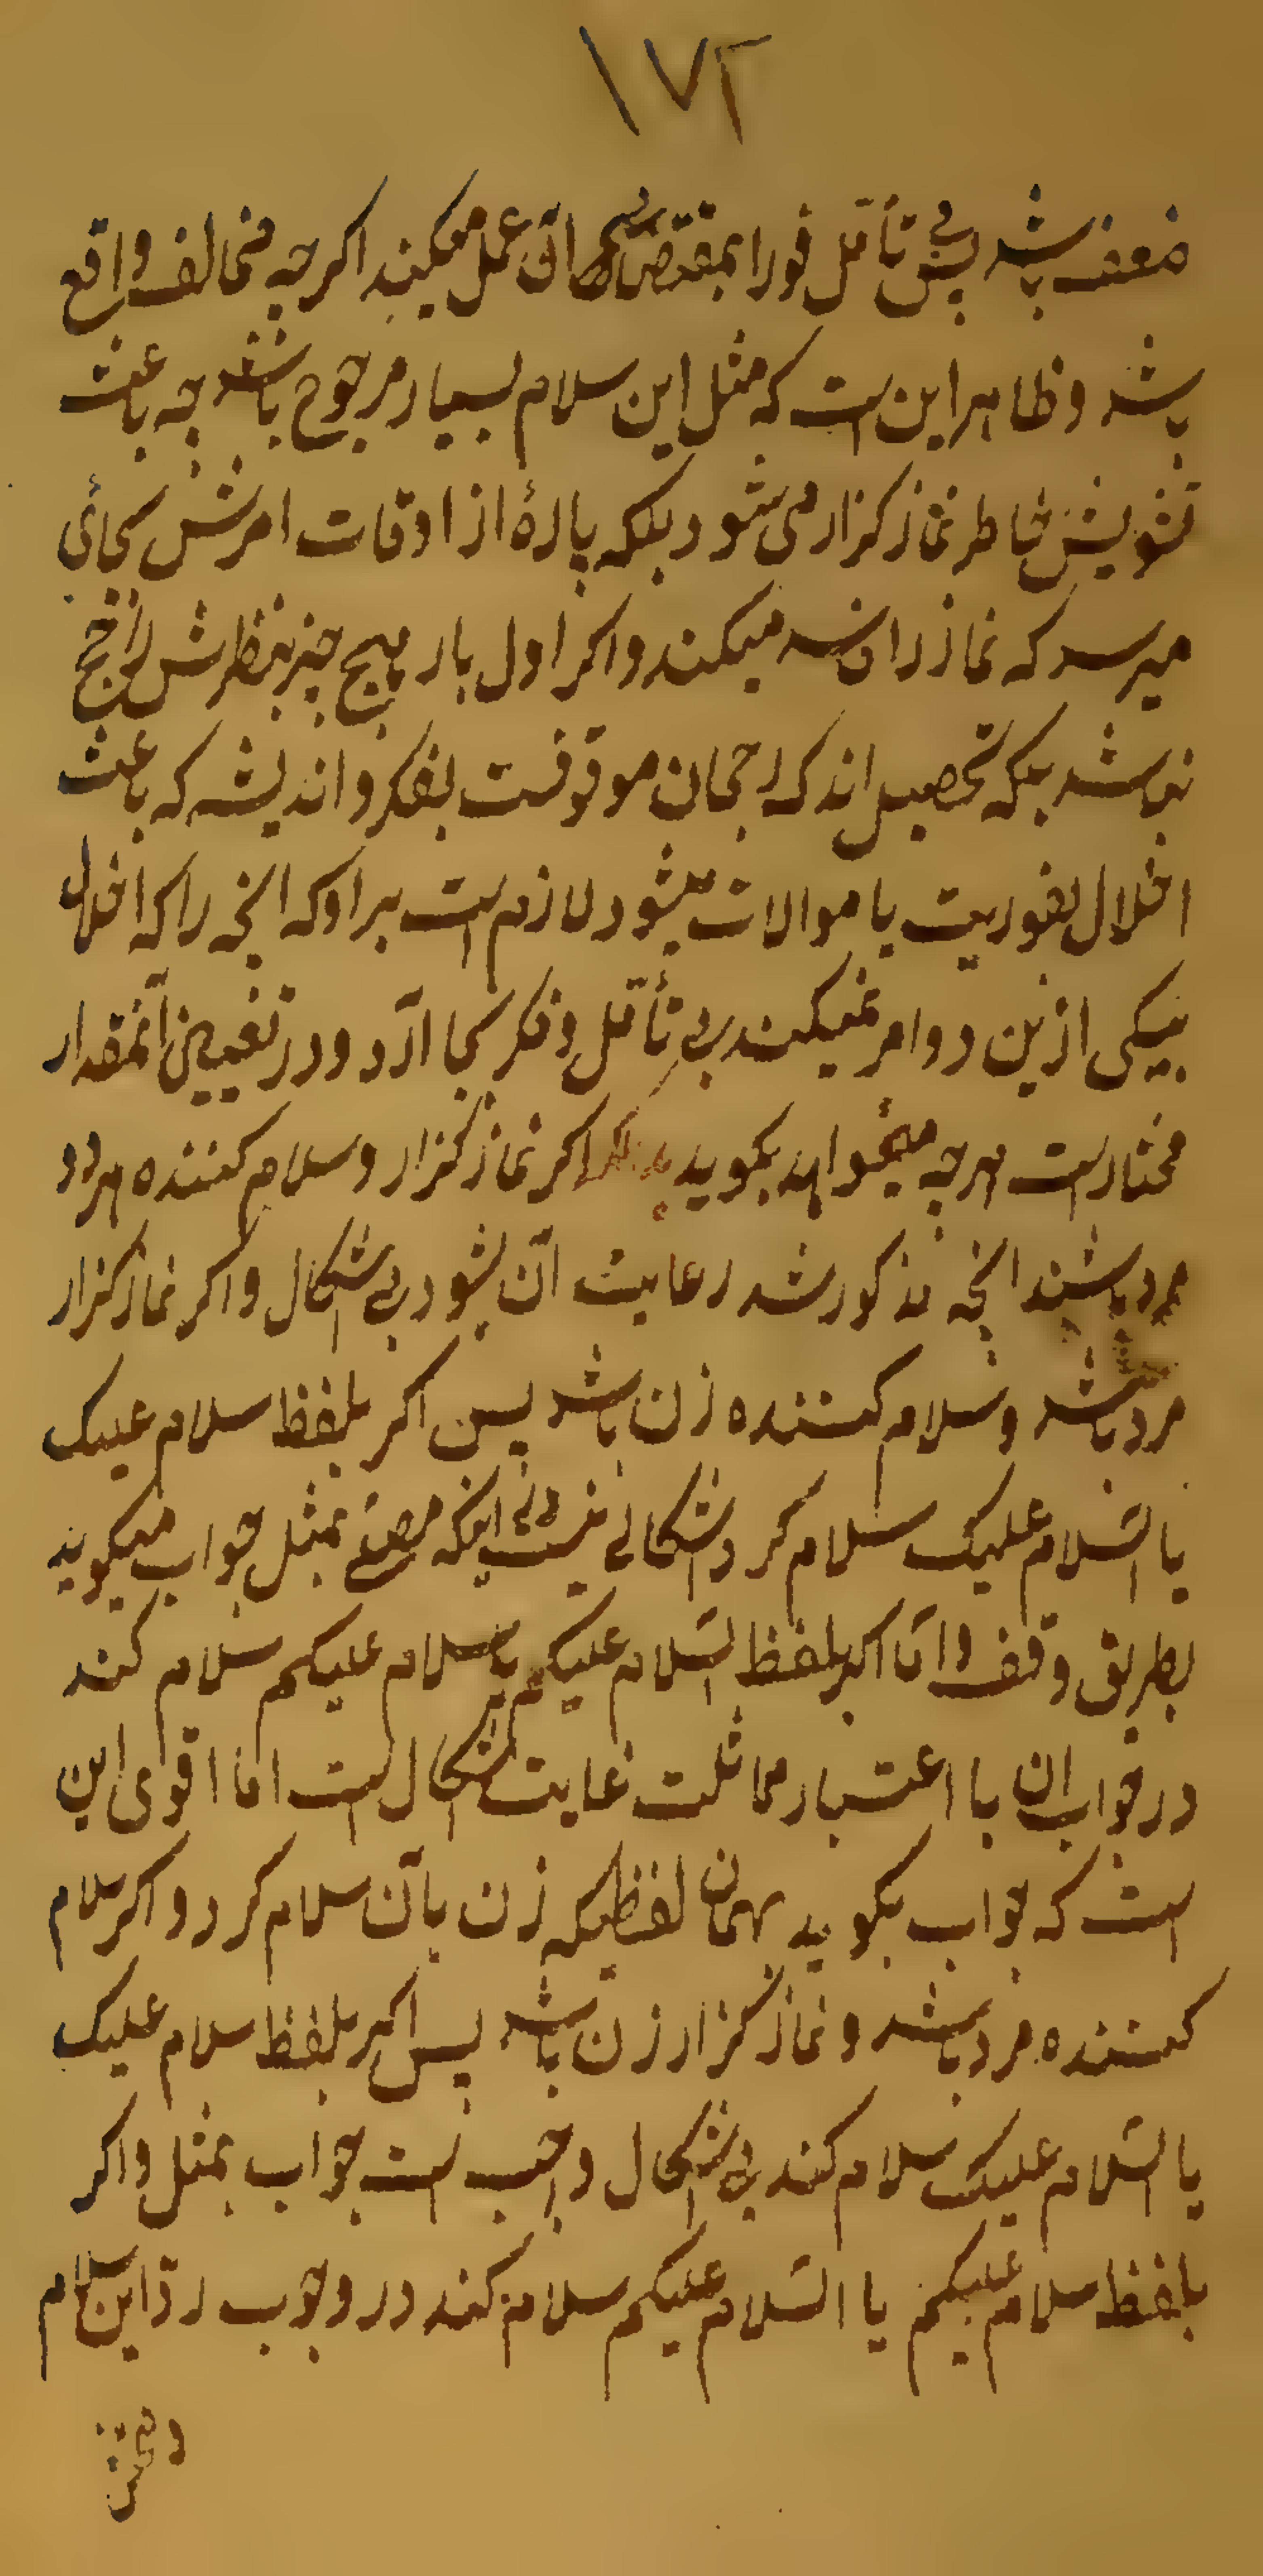 ١٧٢
ضعف باشد پس بی تأمل فورا بمقتضای عمل میکند اکرچه مخالف واقع
باشد و ظاهر این است که مثل این سلام بسیار مرجوح باشد چه باعث
تشویش خاطر نماز کزار می شود بلکه پارهٔ از اوقات امرش بجائی
میرسد که نماز را فاسد میکند و اکر اول بار هیچ چیز بنظرش راجح
نباشد بلکه تحصیل اندک رجحان موقوفست بفکر و اندیشه که باعث
اخلال بفوریت یا موالات میشود لازم است بر او که انچه را که اخلال
بیکی ازین دو امر نمیکند بی تأمل و فکر بجا آرد و در تعیین آنمقدار
مختار است هرچه میخواهد بکوید اکر نماز کزار و سلام کننده هر دو
مرد باشند انچه مذکور شد رعایت آن بشود بی اشکال و اکر نماز کزار
مرد باشد و سلام کننده زن باشد پس اکر بلفظ سلام علیک
یا السّلام علیک سلام کرد اشکالی نیست اینکه مصلّی بمثل جواب میکوید
بطریق وقف و امّا اکر بلفظ السّلام علیکم یا سلام علیکم سلام کند
در جواب ان با اعتبار مماثلت غایت اشکال است اما اقوی این
است که جواب بکوید بهمان لفظیکه زن بآن سلام کرد و اکر سلام
کننده مرد باشد و نماز کزار زن باشد پس اکر بلفظ سلام علیک
یا السّلام علیک سلام کند بی اشکال واجب است جواب بمثل و اکر
بلفظ سلام علیکم یا السّلام علیکم سلام کند در وجوب ردّ این سلام